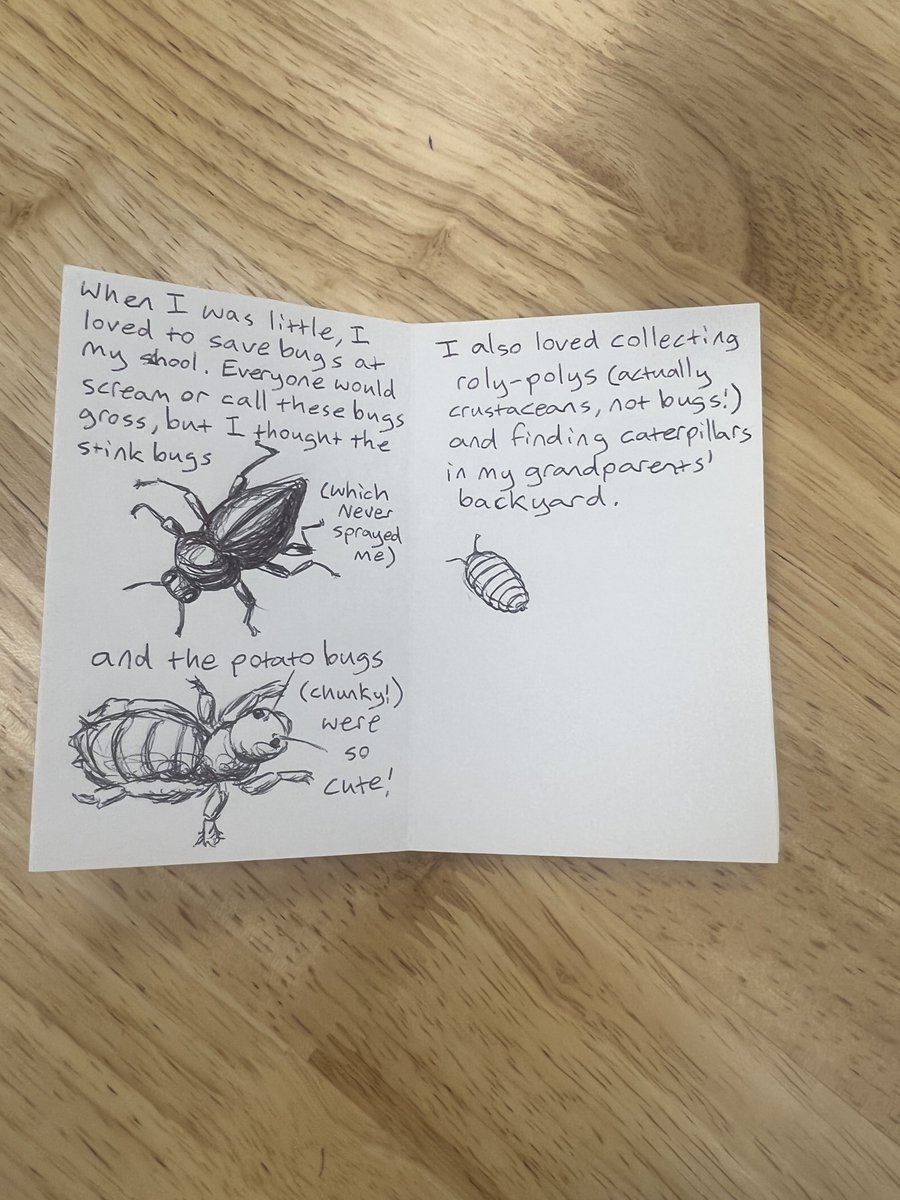 When I was little, I
loved to save bugs at
my shool. Everyone would
scream or call these bugs
gross, but I thought the
stink bugs
(which
never
sprayed
me)
and the potato bugs
(chunky!)
were
so
cute!
I also loved collecting
roly-polys (actually
crustaceans, not bugs!)
and finding caterpillars
in my grandparents'
backyard.